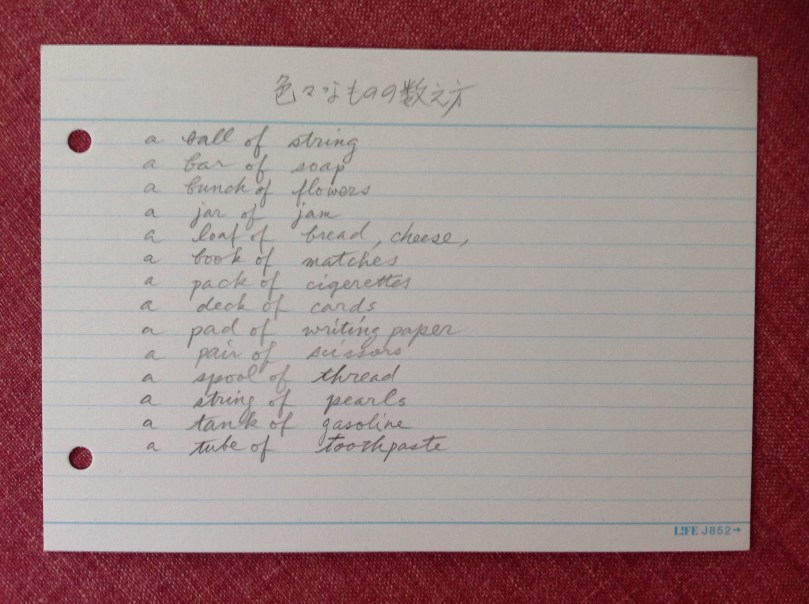 色々なものの数え方
a ball of string
a bar of soap
a bunch of flowers
a jar of jam
a loaf of bread, cheese,
a book of matches
a pack of cigerettes
a deck of cards
a pad of writing paper
a pair of scissors
a spool of thread
a string of pearls
a tank of gasoline
a tube of toothpaste
LIFE J852